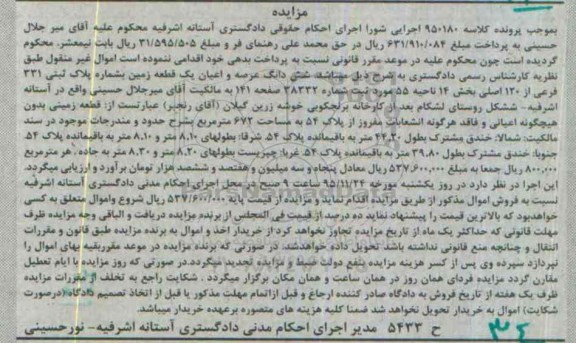 مزایده
بموجب پرونده کلاسه ۹۵۰۱۸۰ اجرایی شورا اجرای احکام حقوقی دادگستری آستانه اشرفیه محکوم علیه آقای میر جلال
حسینی به پرداخت مبلغ ۶۳۱/۹۱۰/۰۸۴ ریال در حق محمد علی رهنمای فر و مبلغ ۳۱/۵۹۵/۵۰۵ ریال بابت نیمعشر، محکوم
گردیده است چون محکوم علیه در موعد مقرر قانونی نسبت به پرداخت بدهی خود اقدامی ننموده است اموال غیر منقول طبق
نظریه کارشناس رسمی دادگستری به شرح ذیل میباشد شش دانگ عرصه و اعیان یک قطعه زمین بشماره پلاک ثبتی ۳۳۱
فرعی از ۱۳۰ اصلی بخش ۱۴ ناحیه ۵۵ مورد ثبت شماره ۳۸۳۳۲ صفحه ۱۴۱ به مالکیت آقای میرجلال حسینی واقع در آستانه
اشرفیه- ششکل روستای لشکام بعد از کارخانه برنجکوبی خوشه زرین گیلان (آقای رنجبر) عبارتست از: قطعه زمینی بدون
هیچگونه اعیانی و فاقد هرگونه انشعابات مفروز از پلاک ۵۴ به مساحت ۶۷۲ مترمربع بشرح حدود و مندرجات موجود در سند
مالکیت: شمالا: خندق مشترک بطول ۴۴.۳۰ متر به باقیمانده پلاک ۵۴. شرقا: بطولهای ۸.۱۰ متر و ۸.۱۰ متر به باقیمانده پلاک ۵۴.
جنوبا: خندق مشترک بطول ۳۹.۸۰ متر به باقیمانده پلاک ۵۴. غربا: چپریست بطولهای ۸.۲۰ متر و ۸.۳۰ متر به جاده، هر مترمربع
۸۰۰.۰۰۰ ریال جمعا به مبلغ ۵۳۷.۶۰۰.۰۰۰ ریال معادل پنجاه و سه میلیون و هفتصد و ششصد هزار تومان برآورد و ارزیابی میگردد.
این اجرا در نظر دارد در روز یکشنبه مورخه ۹۵/۱۱/۲۴ ساعت ۹ صبح در محل اجرای احکام مدنی دادگستری آستانه اشرفیه
نسبت به فروش اموال مذکور از طریق مزایده اقدام نماید و مزایده از قیمت پایه ۵۳۷/۶۰۰/۰۰۰ ریال شروع واموال متعلق به کسی
خواهدبود که بالاترین قیمت را پیشنهاد نماید ده درصد از قیمت فی المجلس از برنده مزایده دریافت و الباقی وجه مزایده ظرف
مهلت قانونی که حداکثر یک ماه از تاریخ مزایده تجاوز نخواهد کرد از خریدار اخذ و اموال به برنده مزایده طبق قانون و مقررات
انتقال و چنانچه منع قانونی نداشته باشد تحویل داده خواهدشد. در صورتی که برنده مزایده در موعد مقرربقیه بهای اموال را
نپردازد سپرده وی پس از کسر هزینه مزایده بنفع دولت ضبط و مزایده تجدید میگردد.در صورتی که روز مزایده با ایام تعطیل
مقارن گردد مزایده فردای همان روز در همان ساعت و همان مکان برگزار میگردد . شکایت راجع به تخلف از مقررات مزایده
ظرف یک هفته از تاریخ فروش به دادگاه صادر کننده ارجاع و قبل ازاتمام مهلت مذکور یا قبل از اتخاذ تصمیم دادگاه (درصورت
شکایت) اموال به خریدار تحویل نخواهد شد ضمنا کلیه هزینه های متصوره برعهده خریدار میباشد.
ح ۵۴۳۳ مدیر اجرای احکام مدنی دادگستری آستانه اشرفیه- نورحسینی